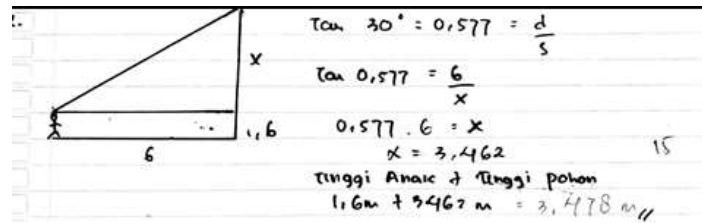 2.
Tan 30° = 0,577 = d/s
x
Tan 0,577 = 6/x
1,6
0,577 . 6 = x
6
x = 3,462
15
Tinggi Anak + Tinggi pohon
1,6m + 3462 m = 3,478 m //